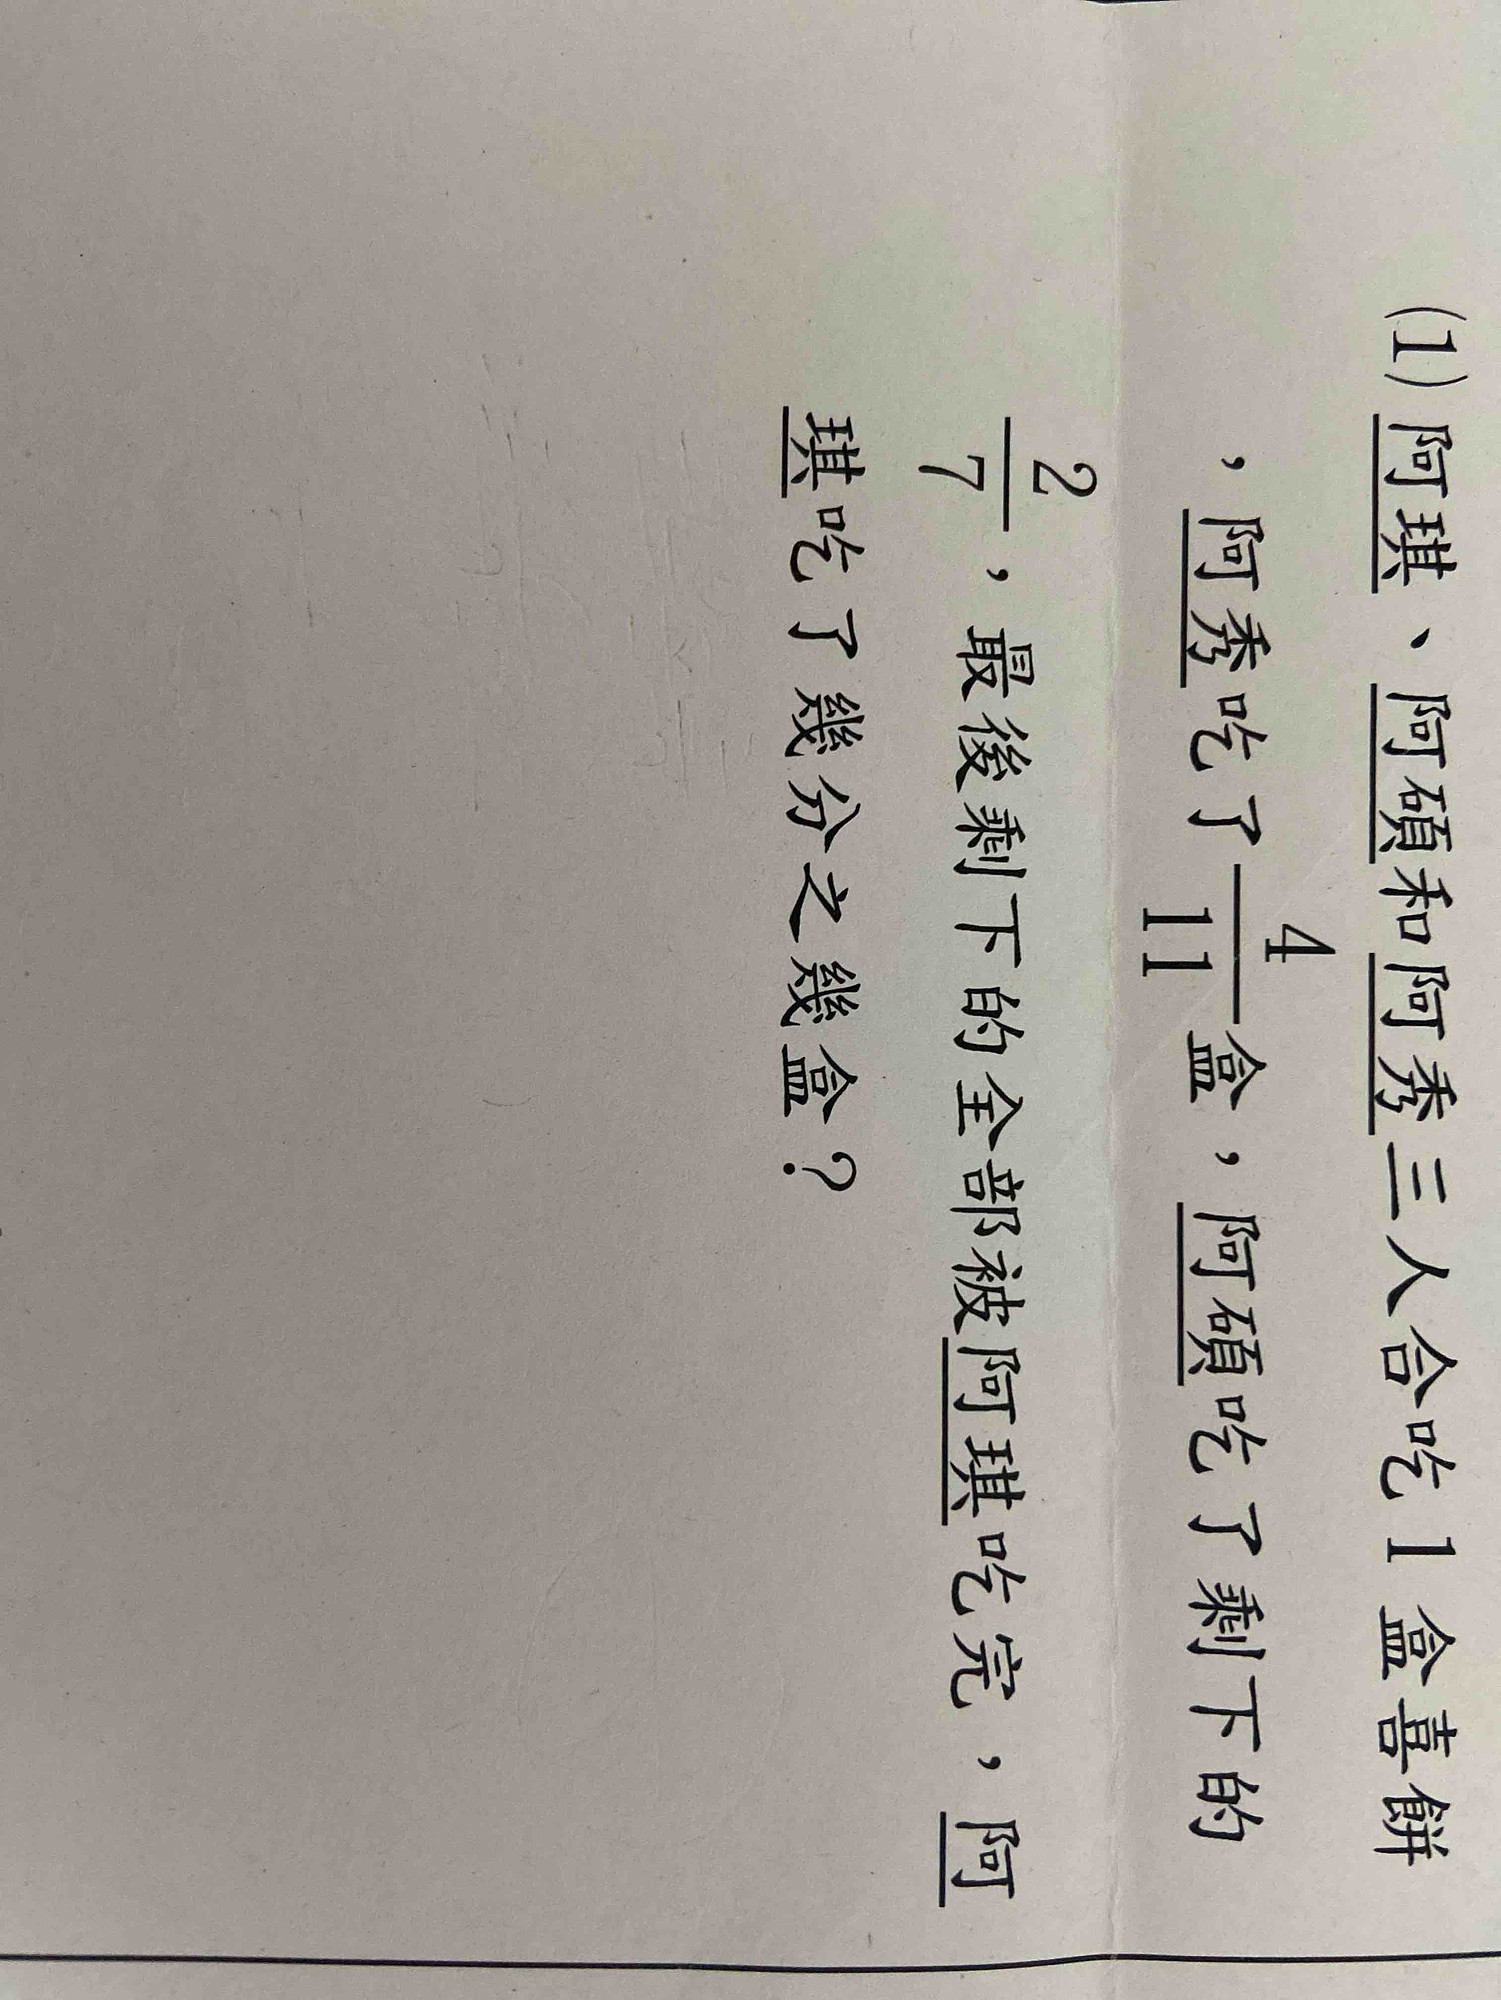 (1)阿琪、阿碩和阿秀三人合吃1盒喜餅
,阿秀吃了4/11盒,阿碩吃了剩下的
2/7,最後剩下的全部被阿琪吃完,阿
琪吃了幾分之幾盒?